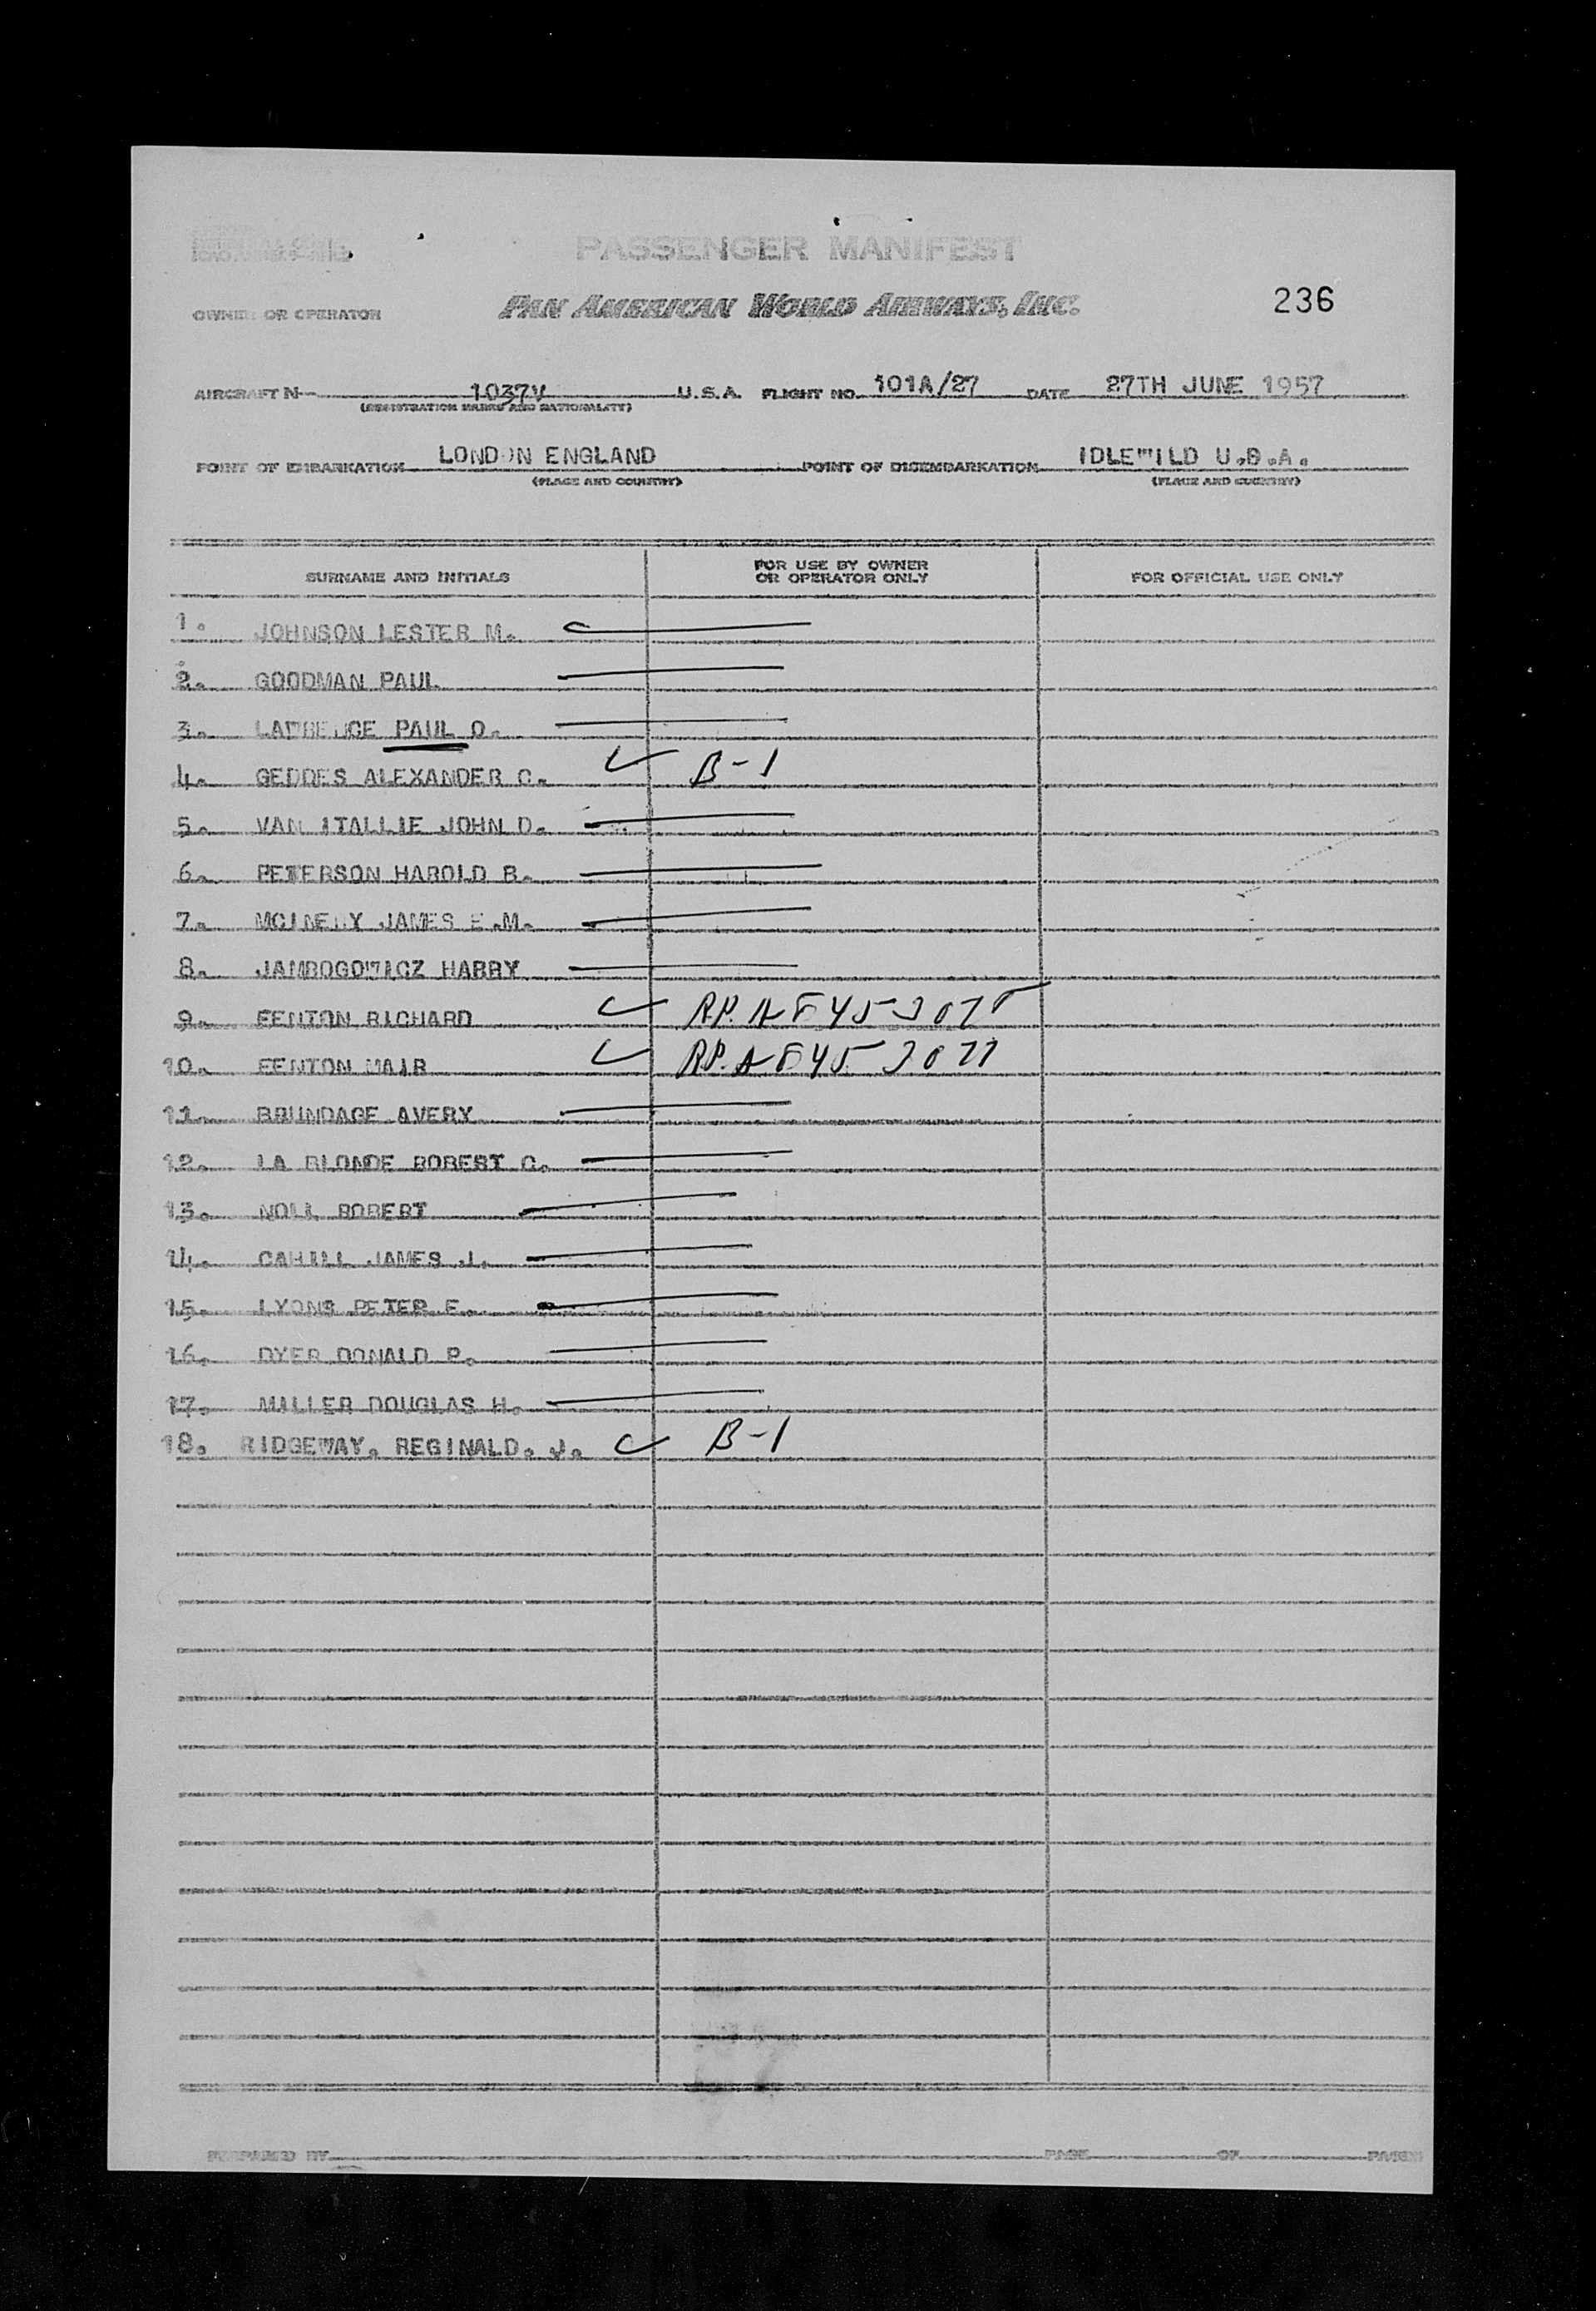 PASSENGER MANIFEST
OWNER OR OPERATOR PAN AMERICAN WORLD AIRWAYS, INC. 236
AIRCRAFT N 1037V U.S.A. FLIGHT NO. 101A/27 DATE 27TH JUNE 1957
(REGISTRATION MARKS AND NATIONALITY)
POINT OF EMBARKATION LONDON ENGLAND POINT OF DISEMBARKATION IDLEWILD U.S.A.
(PLACE AND COUNTRY) (PLACE AND COUNTRY)
SURNAME AND INITIALS FOR USE BY OWNER OR OPERATOR ONLY FOR OFFICIAL USE ONLY
1. JOHNSON LESTER M.
2. GOODMAN PAUL
3. LAWRENCE PAUL O.
4. GEDDES ALEXANDER C. B-1
5. VAN ITALLIE JOHN D.
6. PETERSON HAROLD B.
7. JAMES E.M.
8. HARRY
9. FENTON RICHARD
10. FENTON MAIR
11. BRUNDAGE AVERY
12. LA BLONDE ROBERT C.
13. NOLL ROBERT
14. CAHILL JAMES J.
15. LYONS PETER F.
16. DYER DONALD P.
17. MILLER DOUGLAS H.
18. RIDGEWAY. REGINALD. J. B-1
PREPARED BY PAGE OF PAGES